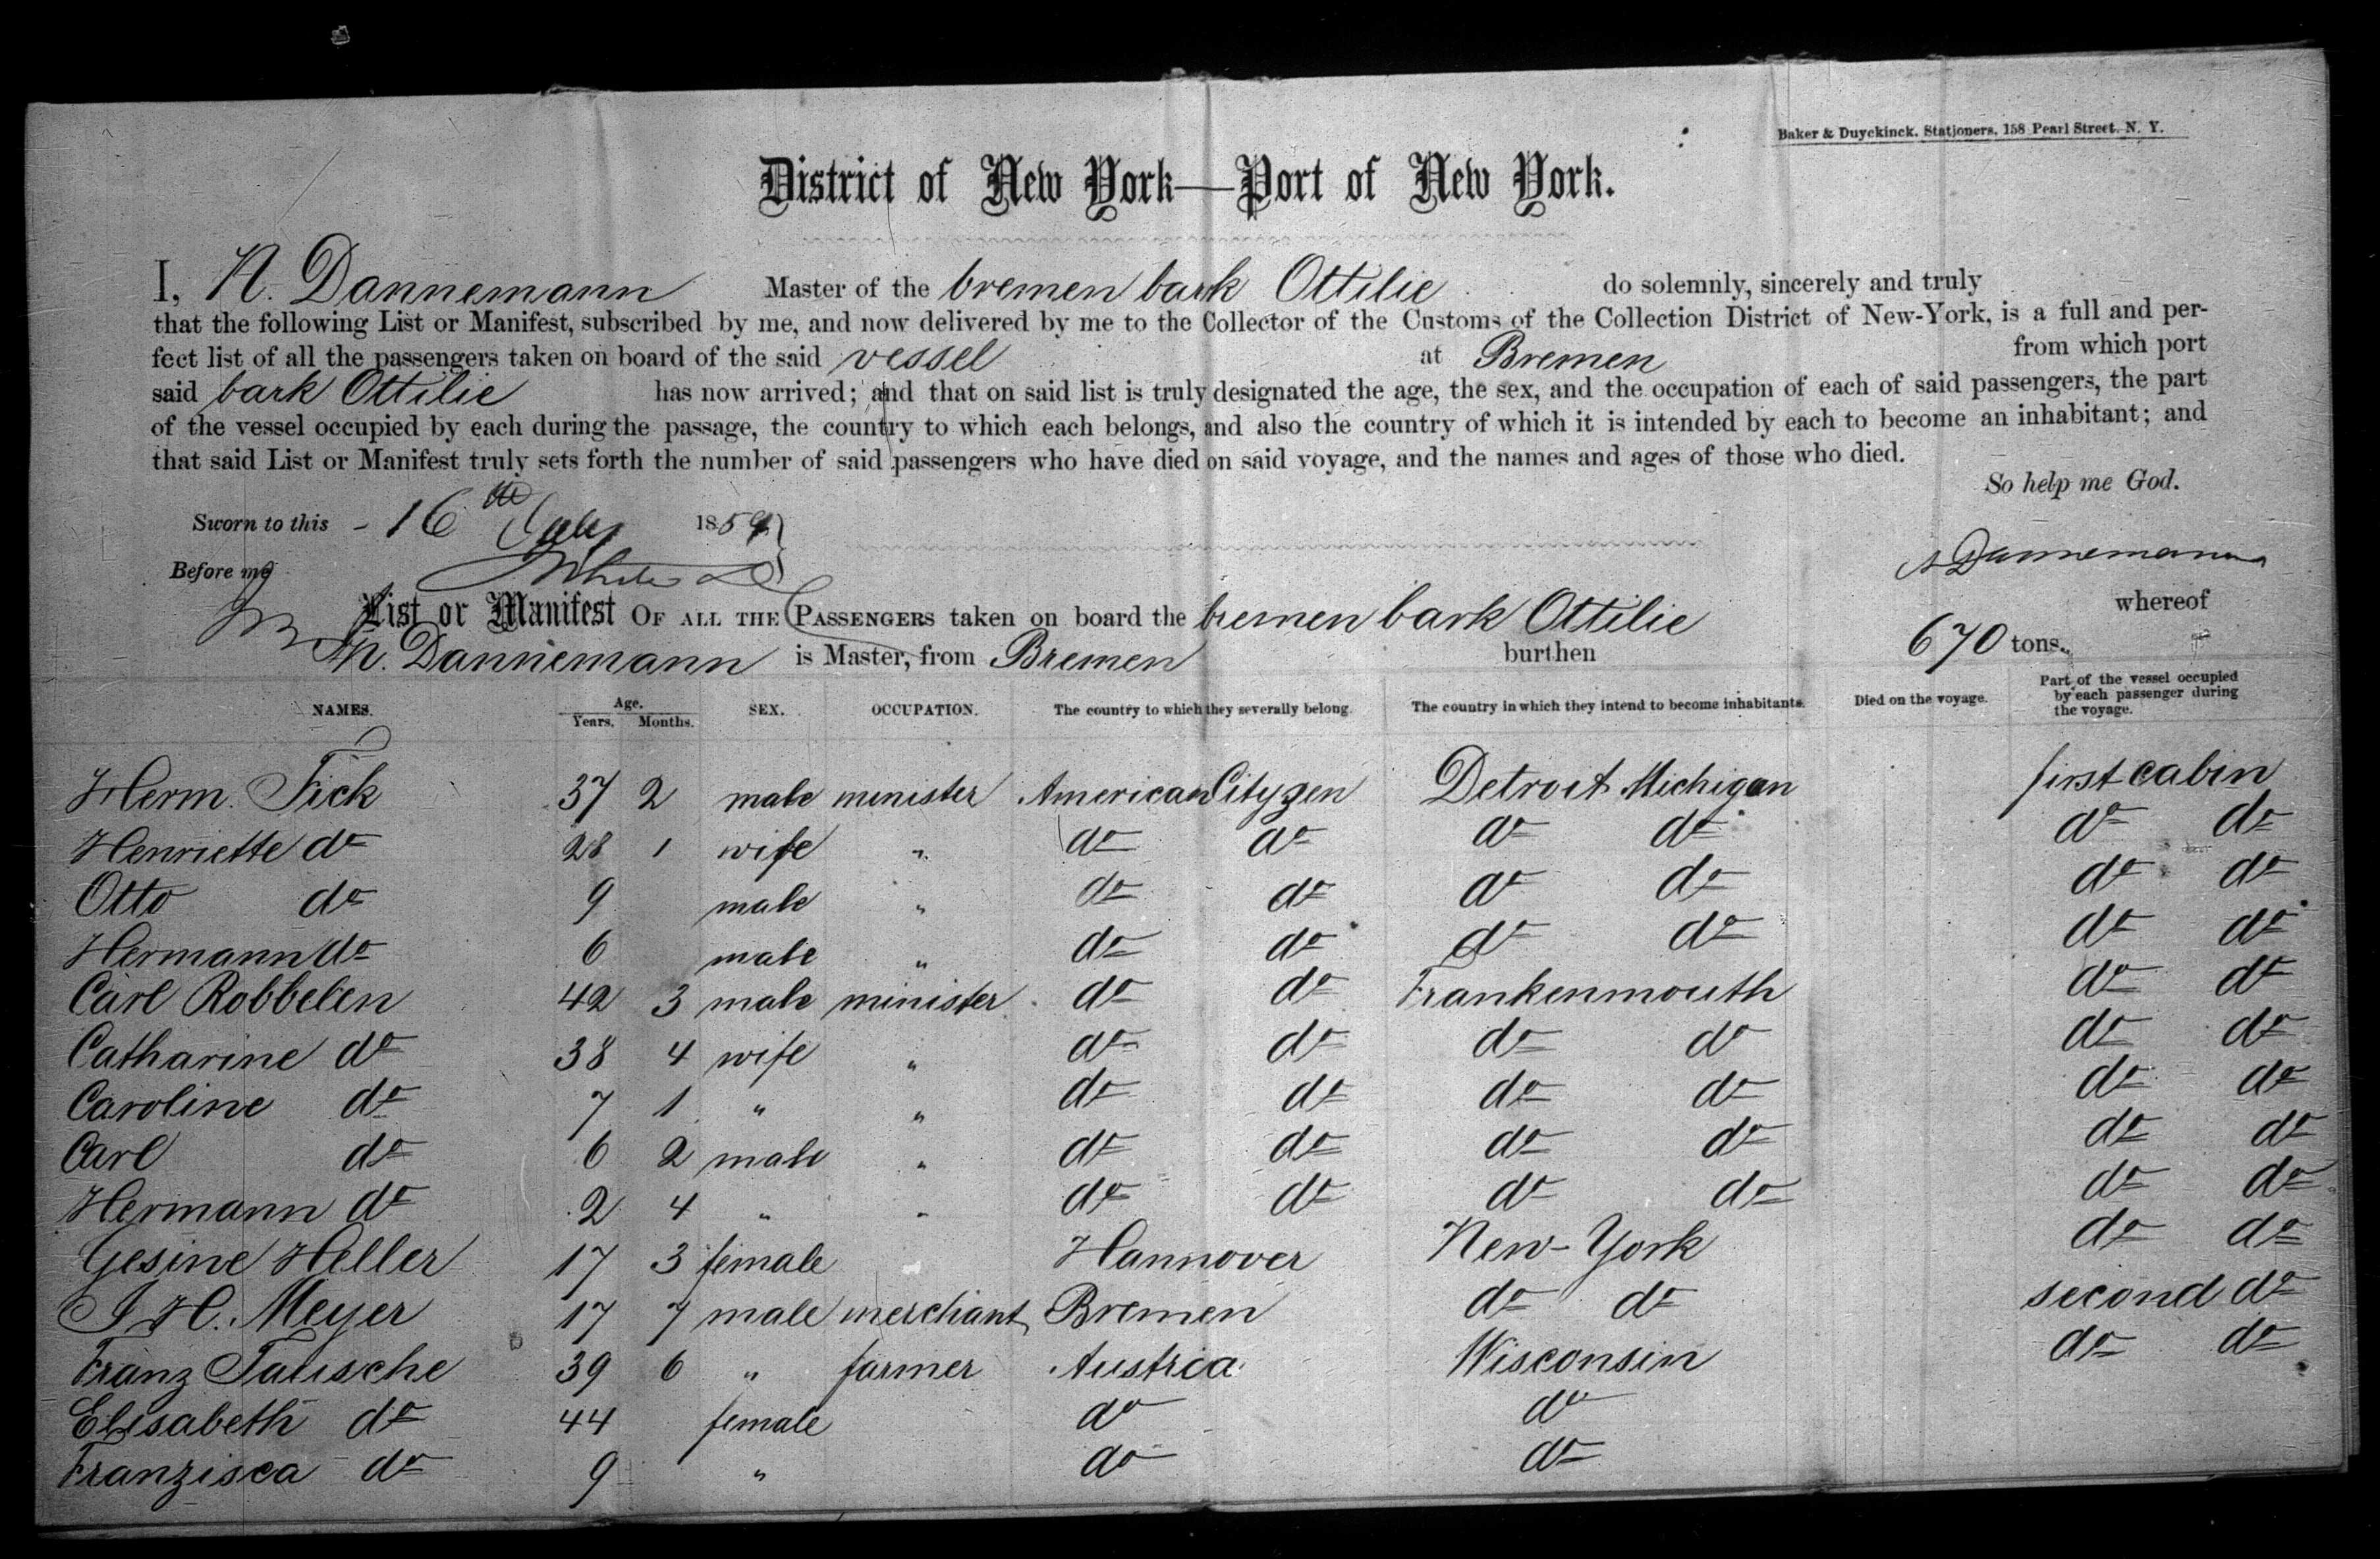 Baker & Duyckinck, Stationers, 158 Pearl Street, N. Y.
District of New York—Port of New York.
I, N. Dannemann Master of the bremen bark Ottilie do solemnly, sincerely and truly
that the following List or Manifest, subscribed by me, and now delivered by me to the Collector of the Customs of the Collection District of New-York, is a full and per-
fect list of all the passengers taken on board of the said vessel at Bremen from which port
said bark Ottilie has now arrived; and that on said list is truly designated the age, the sex, and the occupation of each of said passengers, the part
of the vessel occupied by each during the passage, the country to which each belongs, and also the country of which it is intended by each to become an inhabitant; and
that said List or Manifest truly sets forth the number of said passengers who have died on said voyage, and the names and ages of those who died.
So help me God.
Sworn to this - 16th July 1859
Before me
Dannemann
List or Manifest OF ALL THE PASSENGERS taken on board the bremen bark Ottilie whereof
N. Dannemann is Master, from Bremen burthen 670 tons.
NAMES. Age. Years. Months. SEX. OCCUPATION. The country to which they severally belong. The country in which they intend to become inhabitants. Died on the voyage. Part of the vessel occupied by each passenger during the voyage.
Herm. Fick 37 2 male minister American Cityzen Detroit Michigan first cabin
Henriette do 28 1 wife " do do do do do do
Otto do 9 male " do do do do do do
Hermann do 6 male " do do do do do do
Carl Robbelen 42 3 male minister do do Frankenmouth do do
Catharine do 38 4 wife " do do do do do do
Caroline do 7 1 " " do do do do do do
Carl do 6 2 male " do do do do do do
Hermann do 2 4 " " do do do do do do
Gesine Heller 17 3 female Hannover New-York do do
J. H. Meyer 17 7 male merchant Bremen do do second do
Franz Tausche 39 6 " farmer Austria Wisconsin do do
Elisabeth do 44 female do do
Franzisca do 9 " do do